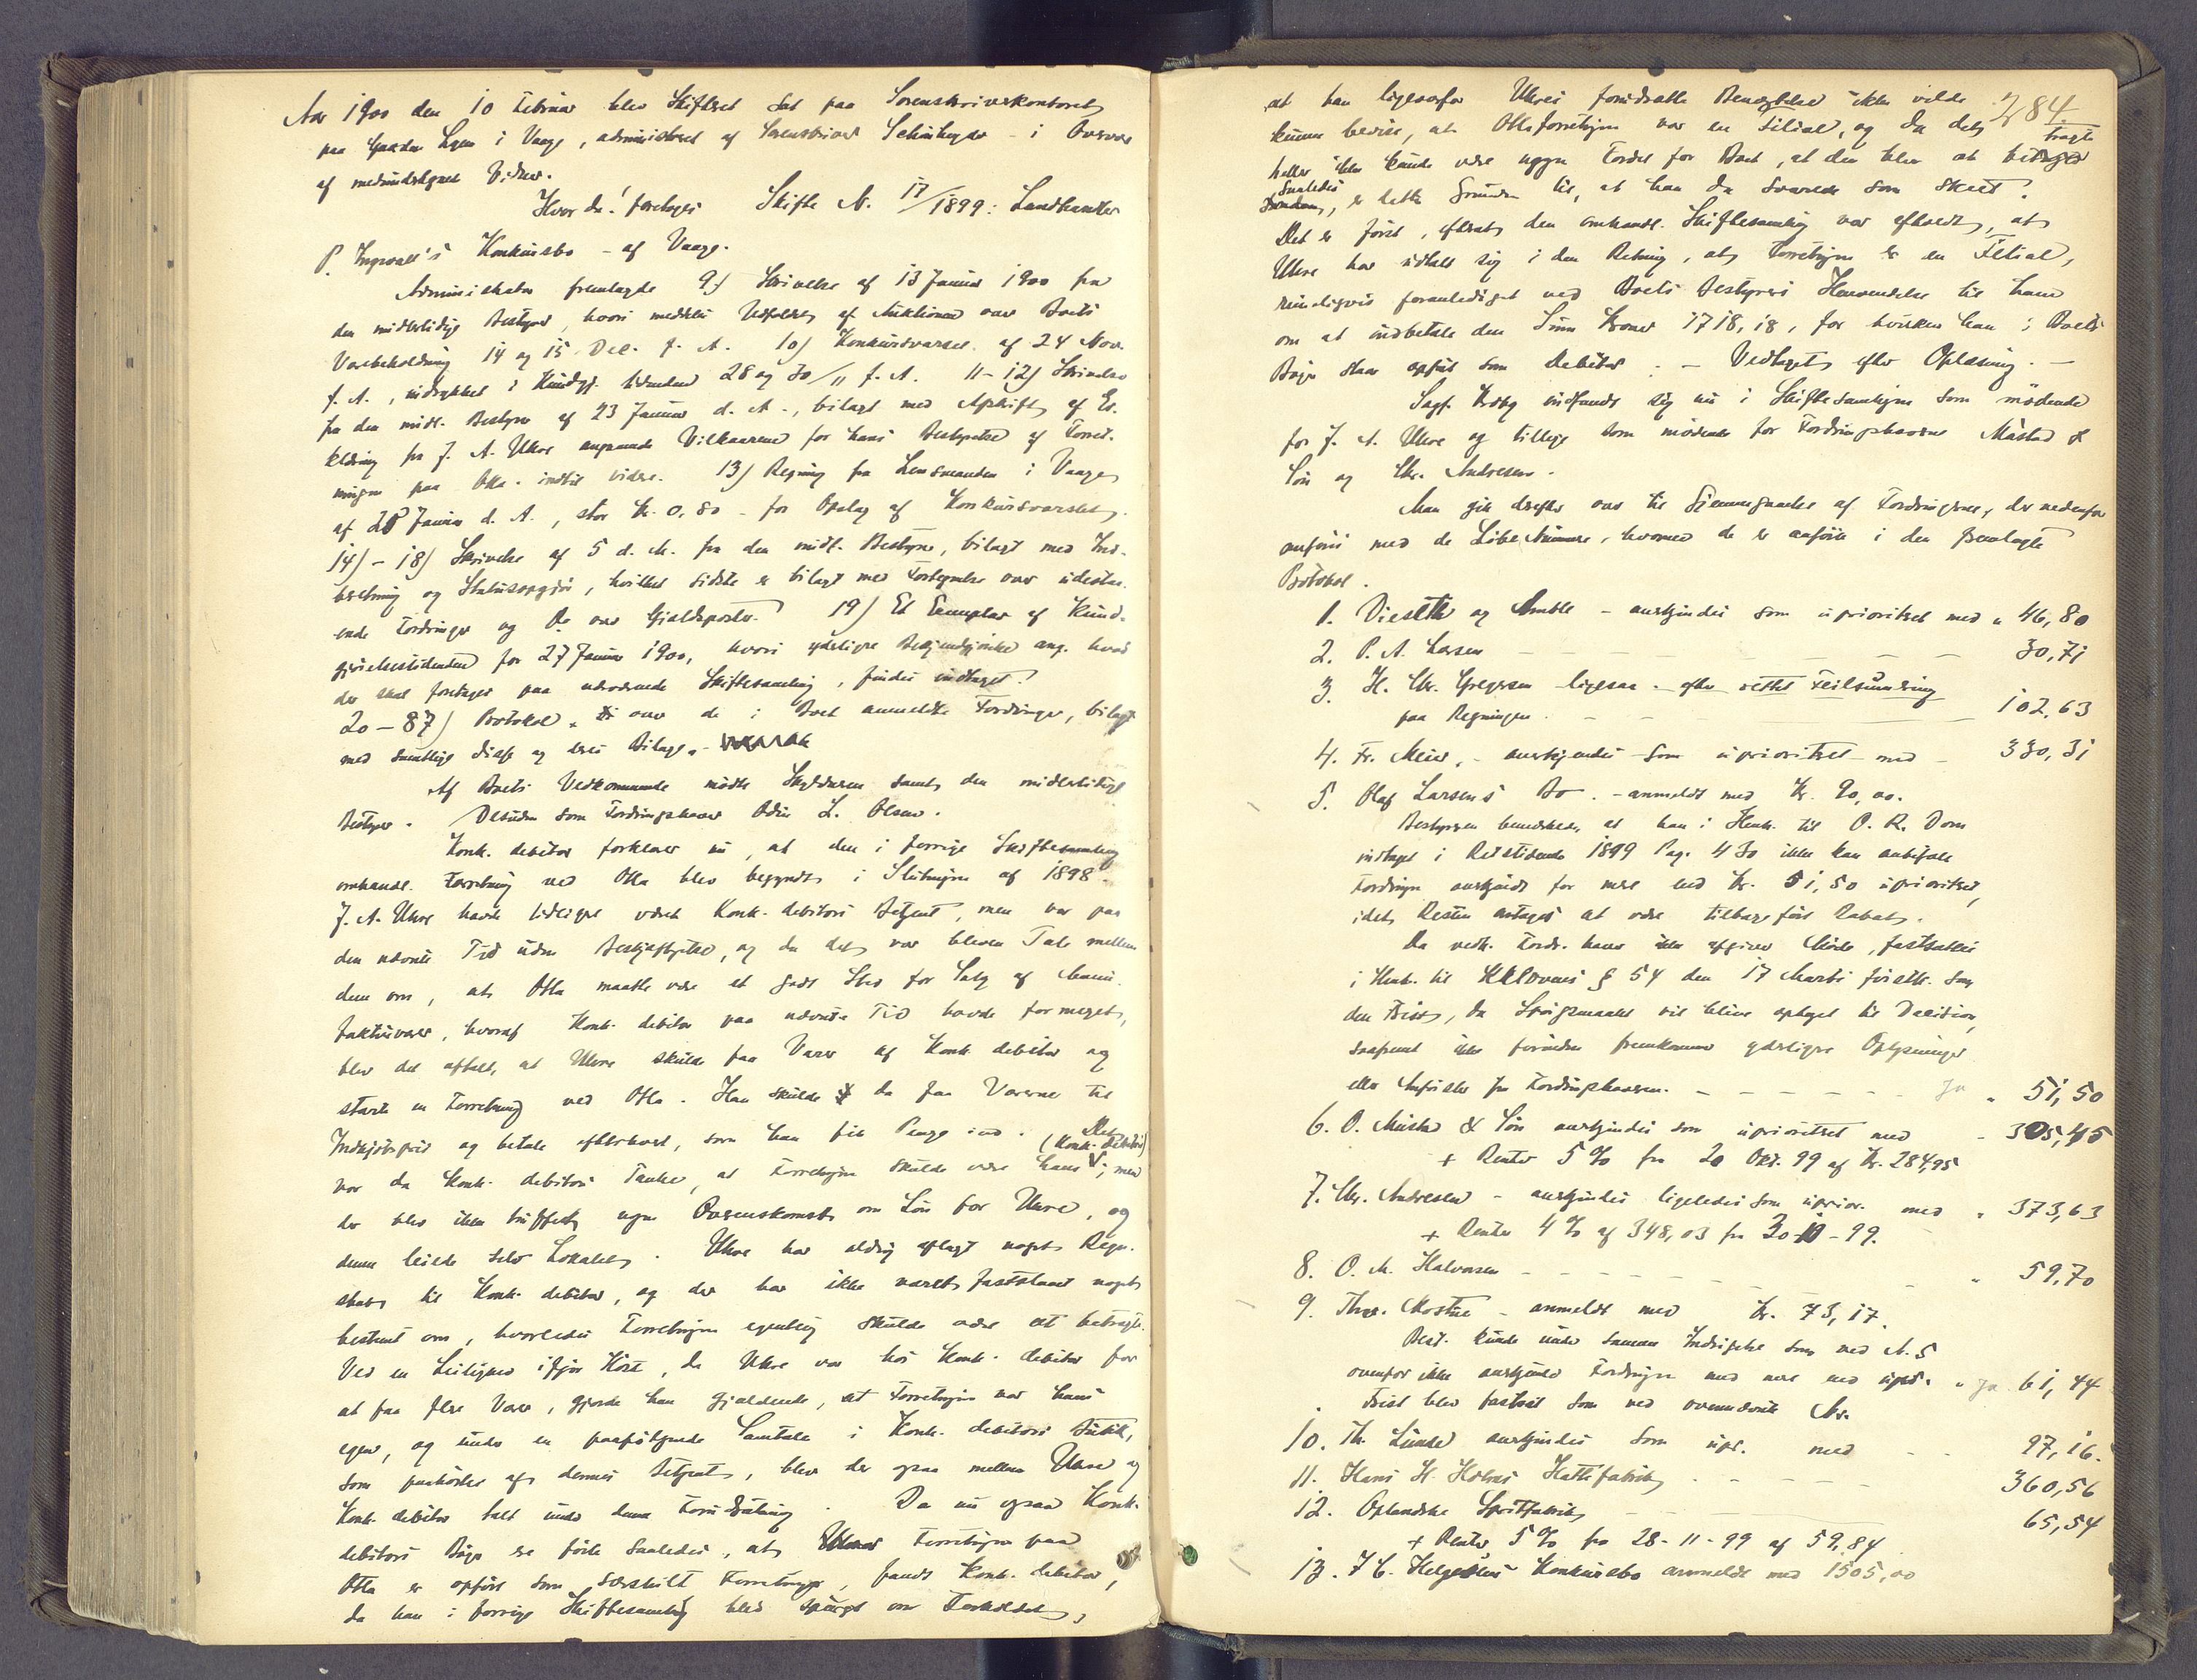 Aar 1900 den 10 Februar blev Skifteret sat paa Sorenskriverkontoret
paa Gaarden i Vaage, administreret af Sorenskriver - i Overvær
af medundertegnede Vidner.
Hvor da! foretoges Skifte N. 17/1899: Landhandler
P. Ingvald's Konkursbo - af Vaage.
Administrator fremlagde 9) Skrivelse af 13 Januar 1900 fra
den midlertidige Bestyrer, hvori meddeles Udfaldet af Auktionen over Boets
Varebeholdning 14 og 15 Dec. f. A. 10) Konkursvarsel af 24 Nov.
f. A., indrykket i Kundgj. tidenden 28 og 30/11 f. A. 11-12) Skrivelse
fra den midl. Bestyrer af 23 Januar d. A., bilagt med Afskrift af Er-
klæring fra J. A. Ukre angaaende Vilkaarene for hans Bestyrelse af Forret-
ningen paa Otta indtil videre. 13) Regning fra Lensmanden i Vaage
af 25 Januar d. A., stor Kr. 0,80 - for Opslag af Konkursvarslet.
14) - 18) Skrivelse af 5 d. M. fra den midl. Bestyrer, bilagt med Ind-
beretning og Statusopgjør, hvilket sidste er bilagt med Fortegnelse over udestaa-
ende Fordringer og Do over Gjældsposter. 19) Et Exemplar af Kund-
gjørelsestidenden for 27 Januar 1900, hvori yderligere Bekjendtgjørelse ang. hvad
der skal foretages paa nærværende Skiftesamling, findes indtaget.
20-87) Protokol over de i Boet anmeldte Fordringer, bilagt
med samtlige disse og deres Bilage.
Af Boets Vedkommende mødte Skyldneren samt den midlertidige
Bestyrer. Desuden som Fordringshaver Odin L. Olsen.
Konk. debitor forklarer nu, at den i forrige Skiftesamling
omhandl. Forretning ved Otta blev begyndt i Slutningen af 1898.
J. A. Ukre havde tidligere været Konk. debitors Betjent, men var paa
den nævnte Tid uden Beskjæftigelse, og da det var bleven Tale mellem
dem om, at Otta maatte være et godt Sted for Salg af Manu-
fakturvarer, hvoraf Konk. debitor paa nævnte Tid havde formeget,
blev det aftalt, at Ukre skulde faa Varer af Konk. debitor og
starte en Forretning ved Otta. Han skulde da faa Varerne til
Indkjøbspris og betale efterhvert, som han fik Penge ind. Det
var da Konk. debitors Tanke, at Forretningen skulde være hans (Konk. debitors); men
der blev ikke truffet nogen Overenskomst om Løn for Ukre, og
denne leiede selv Lokalet. Ukre har aldrig aflagt noget Regn-
skab til Konk. debitor, og der har ikke været fastslaaet noget
bestemt om, hvorledes Forretningen egentlig skulde være at betragte.
Ved en Leilighed ifjor Høst, da Ukre var hos Konk. debitor for
at faa flere Varer, gjorde han gjældende, at Forretningen var hans
egen, og under en paafølgende Samtale i Konk. debitors Butik,
som paahørtes af dennes Betjent, blev der ogsaa mellem Ukre og
Konk. debitor talt under denne Forudsætning. Da nu ogsaa Konk.
debitors Bøger er førte saaledes, at Forretningen paa
Otta er opført som særskilt Forretning, fandt Konk. debitor,
da han i forrige Skiftesamling blev spurgt om Forholdet,
284.
at han ligeoverfor Ukres forudsatte Benegtelse ikke vilde
kunne bevise, at Ottaforretningen var en Filial, og da det
heller ikke kunde være nogen Fordel for Boet, at den blev at betragte
saaledes, er dette Grunden til, at han da svarede som skeet.
Det er først, efterat den omhandl. Skiftesamling var afholdt, at
Ukre har udtalt sig i den Retning, at Forretningen er en Filial,
rimeligvis foranlediget ved Boets Bestyrers Henvendelse til ham
om at indbetale den Sum Kroner 1718,18, for hvilken han i Boets
Bøger staar opført som Debitor. - Vedtaget efter Oplæsning. -
Sagf. indfandt sig nu i Skiftesamlingen som mødende
for J. A. Ukre og tillige som mødende for Fordringshaverne Mustad &
Søn og Chr. Andresen.
Man gik derefter over til Gjennemgaaelse af Fordringerne, der nedenfor
anføres med de Løbe Numere, hvormed de er anførte i den fremlagte
Protokol.
1. og Amble - anerkjendes som uprioriteret med " 46,80
2. P. A. Larsen - - - 30,71
3. H. Chr. Gregersen ligesaa - efter rettet Feilsummering
paa Regningen. - - 102,63
4. Fr. Meier, - anerkjendes som uprioriteret med - 330,31
5. Olaf Larsens Bo. - anmeldt med Kr. 90,00.
Bestyreren bemerkede, at han i Henh. til O. R. Dom
indtaget i Retstidende 1899 Pag. 430 ikke kan anbefale
Fordringen anerkjendt for mere end Kr. 51,50 uprioriteret,
idet Resten antages at være tilbageført Rabat.
Da vedk. Fordr. haver ikke afgiver Møde, fastsattes
i Henh. til KKLovens § 54 den 17 Marts førstk. som
den Frist, da Spørgsmaalet vil blive optaget til Decision,
saafremt ikke forinden fremkommer yderligere Oplysninger
eller Anførsler fra Fordringshaveren. - - - Ja " 51,50
6. O. Mustad & Søn anerkjendes som uprioriteret med - 305,45
+ Renter 5 % fra 20 Okt. 99 af Kr. 284,95
7. Chr. Andresen - anerkjendes ligeledes som uprior. med " 373,63
+ Renter 4 % af 348,03 fra 20-10-99.
8. O. M. Halvorsen - - - " 59,70
9. Thor. Mostue - anmeldt med Kr. 73,17.
Best. kunde under samme Indsigelse som ved N. 5
ovenfor ikke anerkjende Fordringen med mere end upr. " Ja 61,44
Frist blev fastsat som ved ovennævnte No.
10. Th. Lunde anerkjendes som upr. med - - 97,16.
11. Hans H. Holms Hattefabrik - - - 360,56
12. Oplandske Spritfabrik 65,54
+ Renter 5 % fra 28-11-99 af 59,84
13. Konkursbo anmeldt med 1505,00